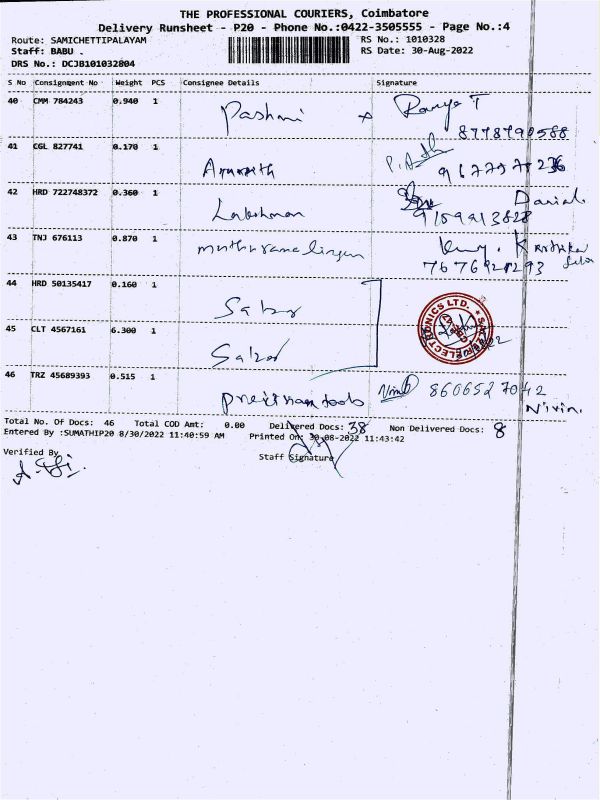 THE PROFESSIONAL COURIERS, Coimbatore
Delivery Runsheet - P20 - Phone No.:0422-3505555 - Page No.:4
Route: SAMICHETTIPALAYAM RS No.: 1010328
Staff: BABU . RS Date: 30-Aug-2022
DRS No.: DCJB101032804
S No Consignment No Weight PCS Consignee Details Signature
40 CMM 784243 0.940 1 Pashmi Ramya T
8778790588
41 CGL 827741 0.170 1 9677571236
42 HRD 722748372 0.360 1 Lakshman Danial.
9159913828
43 TNJ 676113 0.870 1 muthuramalingam
7676921293
44 HRD 50135417 0.160 1
45 CLT 4567161 6.300 1 Salzer
ELECTRONICS LTD.
46 TRZ 45689393 0.515 1 preitham tools 8606527042
Nivin.
Total No. Of Docs: 46 Total COD Amt: 0.00 Delivered Docs: 38 Non Delivered Docs: 8
Entered By :SUMATHIP20 8/30/2022 11:40:59 AM Printed On: 30-08-2022 11:43:42
Verified By Staff Signature